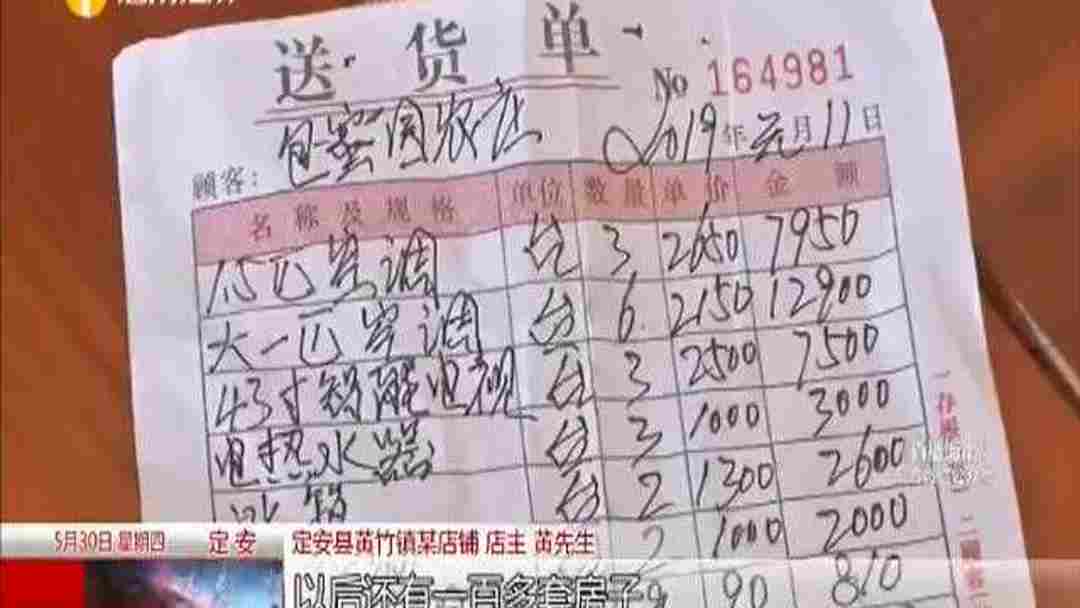 送货单
No 164981
包蜜园农庄
2019年元月11日
顾客:
名称及规格 单位 数量 单价 金额
1.5匹空调 台 3 2650 7950
大一匹空调 台 6 2150 12900
43寸智能电视 台 3 2500 7500
电热水器 台 3 1000 3000
冰箱 台 2 1300 2600
2 1000 2000
9 90 810
5月30日 星期四 定安 定安县黄竹镇某店铺 店主 黄先生
以后还有一百多套房子